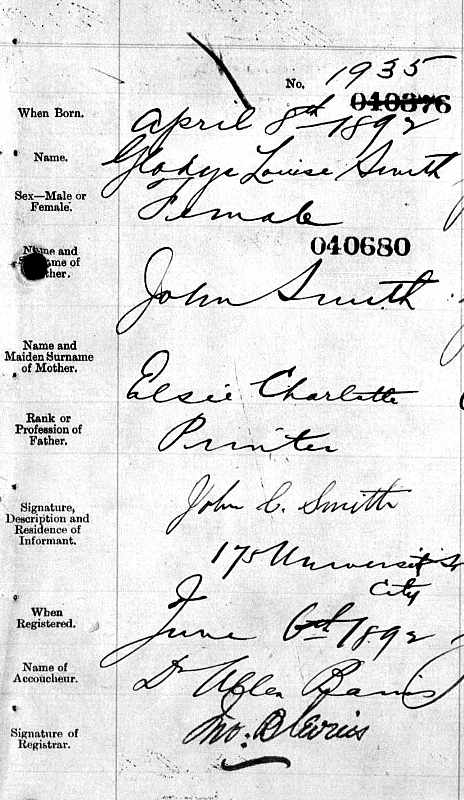 No. 1935
040376
When Born.
April 8th 1892
Name.
Gladys Louise Smith
Sex—Male or
Female.
Female
040680
Name and
Surname of
Father.
John Smith
Name and
Maiden Surname
of Mother.
Elsie Charlotte
Rank or
Profession of
Father.
Printer
John C. Smith
Signature,
Description and
Residence of
Informant.
175 University St
City
When
Registered.
June 6th 1892
Name of
Accoucheur.
Dr Allen
Signature of
Registrar.
Jno. Blevins